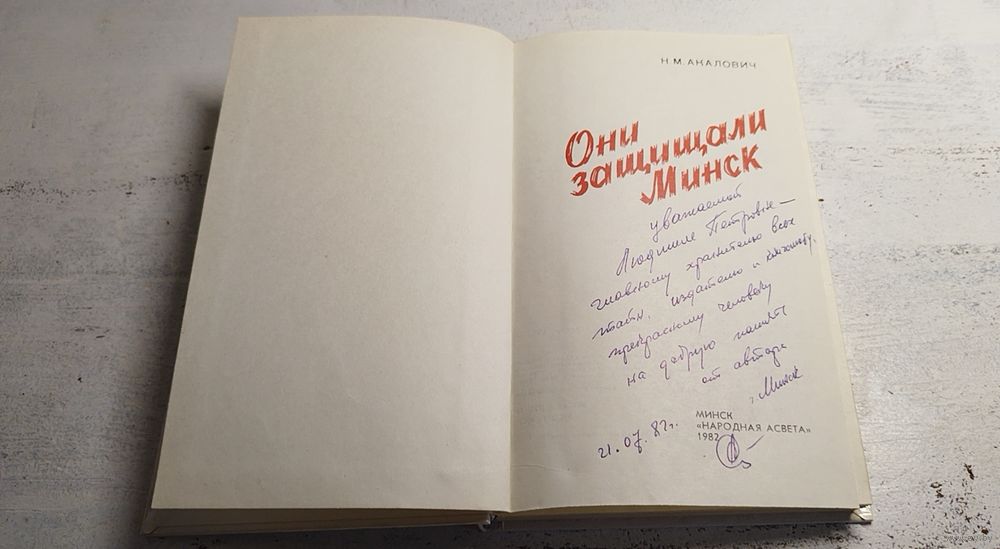 Н. М. АКАЛОВИЧ
Они
защищали
Минск
уважаемой
Людмиле Петровне —
главному хранителю всех
тайн, издателю и
прекрасному человеку
на добрую память
от автора
г. Минск
21.07.82г.
МИНСК
«НАРОДНАЯ АСВЕТА»
1982